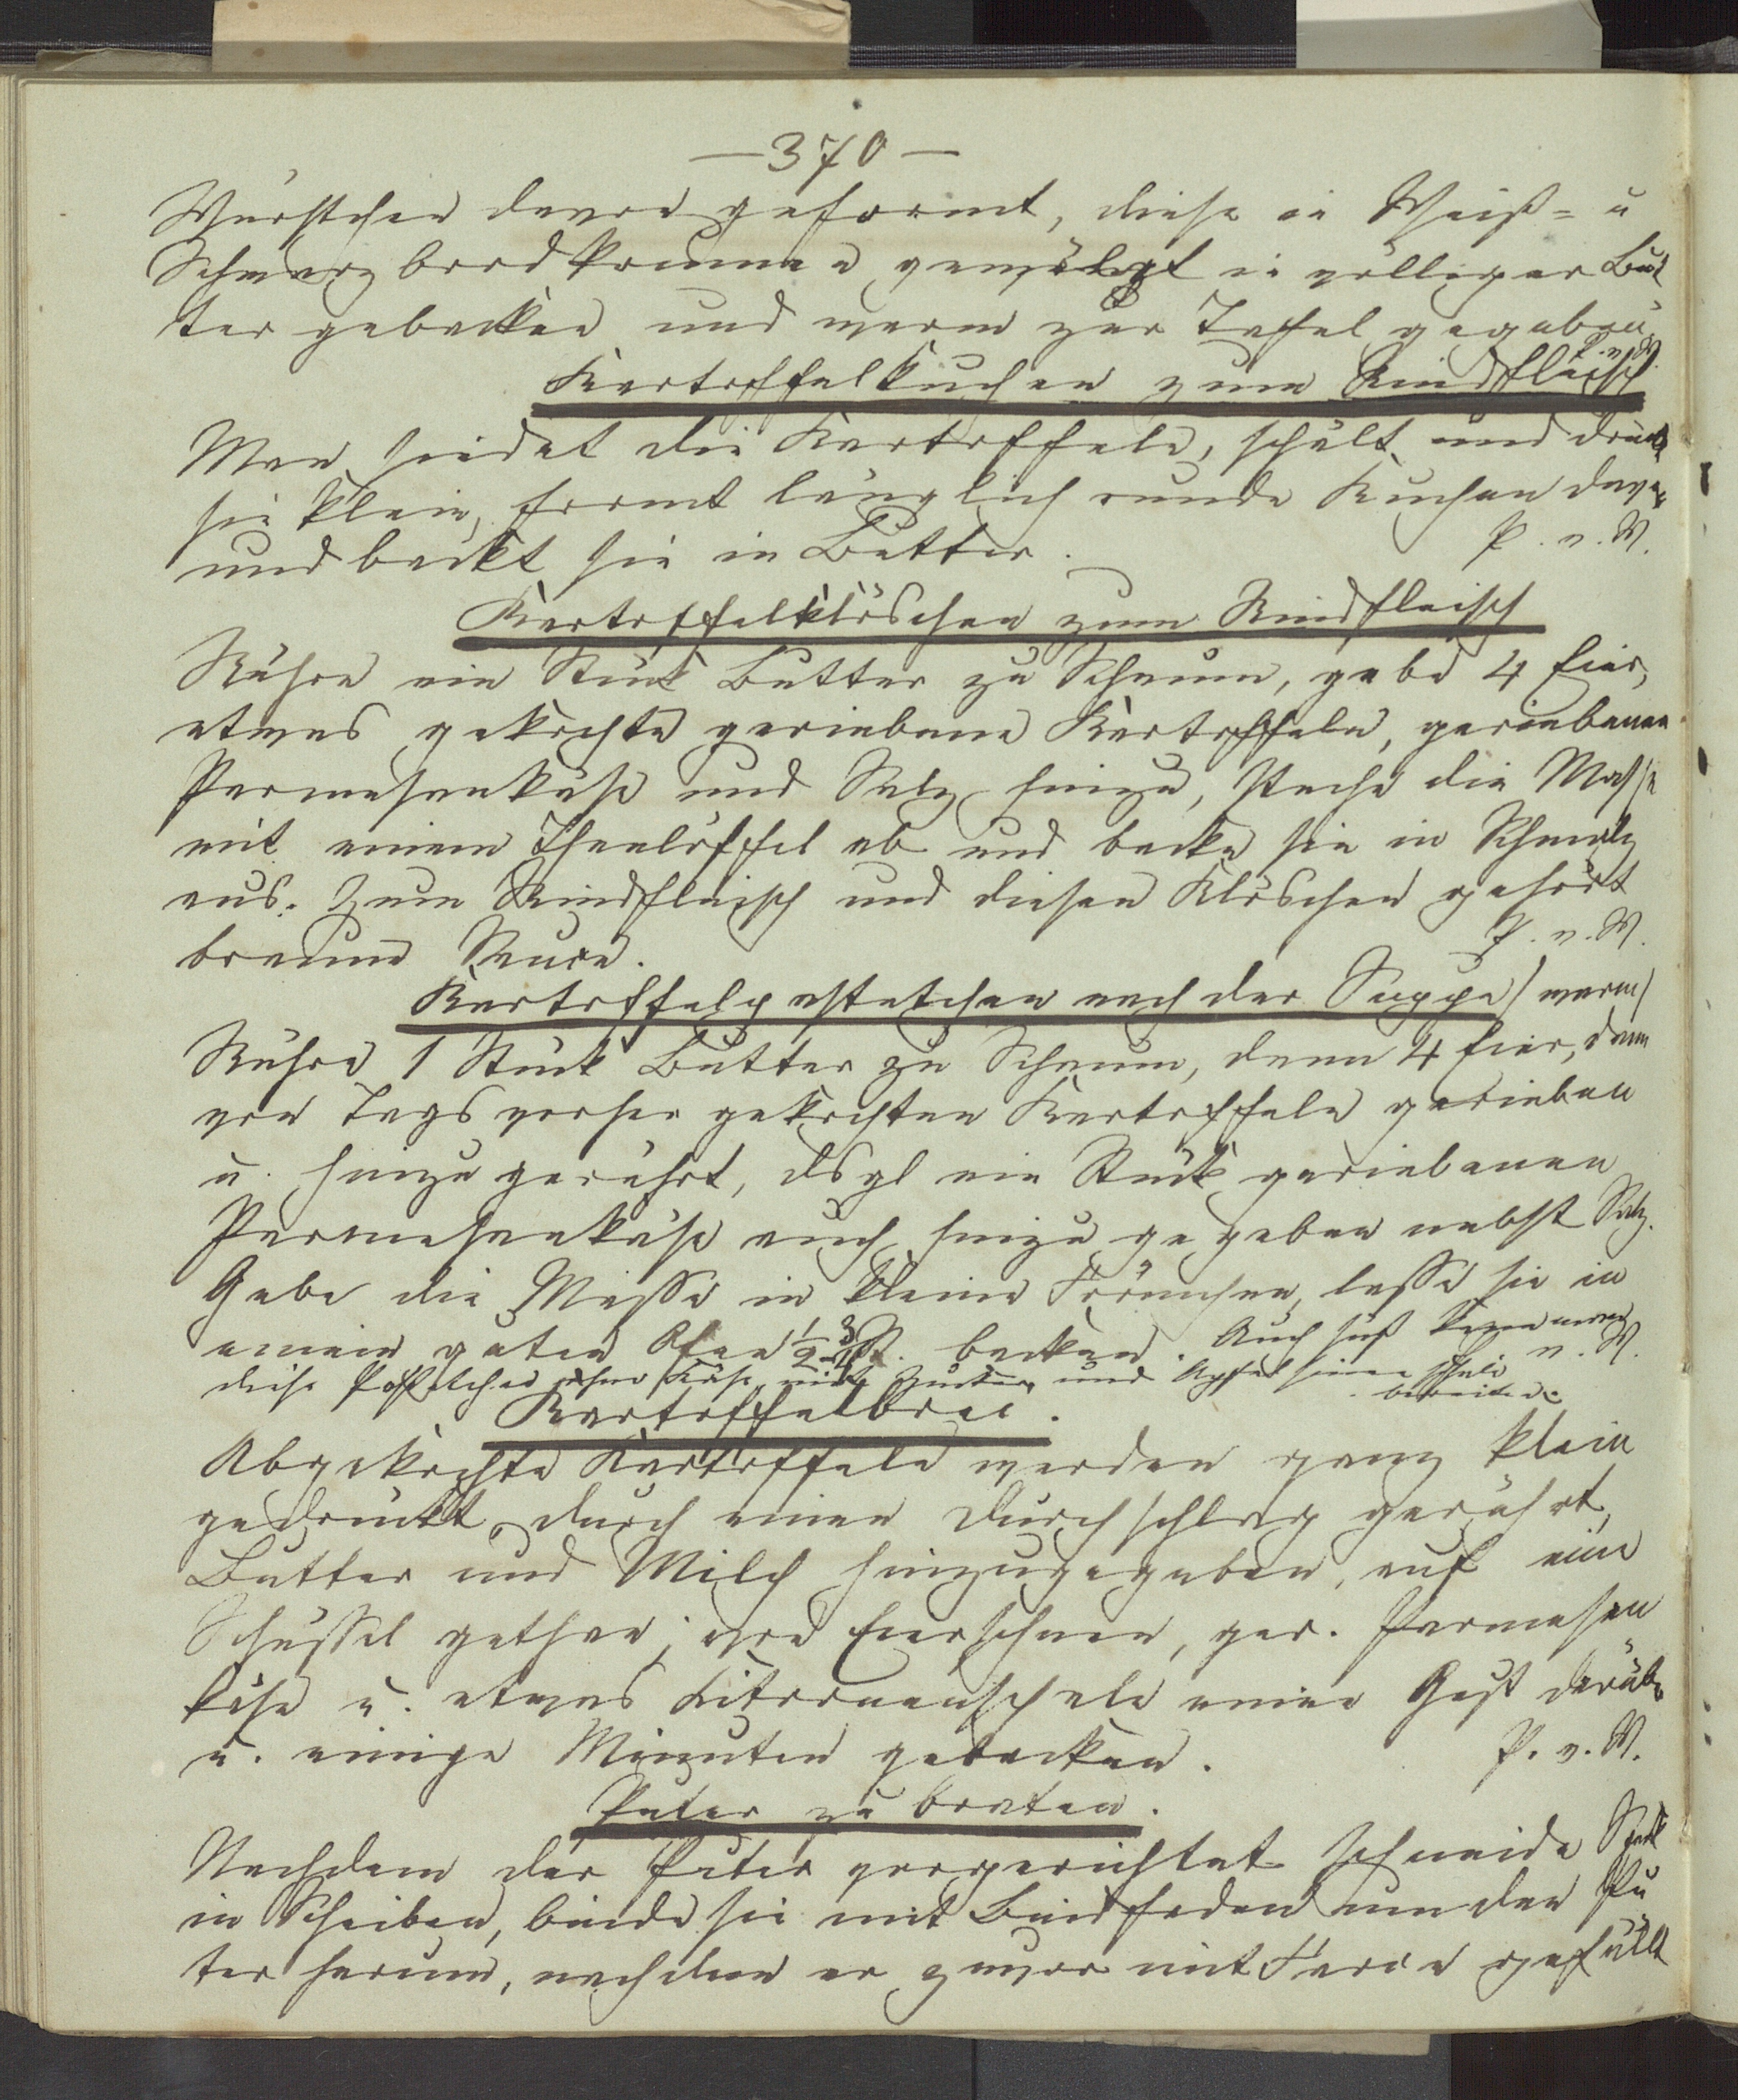 — 370 —
Würstchen davon geformt, diese in Weiß- u
Schwarzbrodkrumme gewälgt in völliger But
ter gebacken und warm zur Tafel gegeben
P. v. W.
Kartoffelkuchen zum Rindfleisch
Man siedet die Kartoffeln, schält und drückt
sie klein, formt länglich runde Kuchen davon
und backt sie in Butter. P. v. W.
Kartoffelklöschen zum Rindfleisch
Rühre ein Stück Butter zu Schaum, gebe 4 Eier,
etwas gekochte geriebene Kartoffeln, geriebenen
Parmesankäse und Salz hinzu, steche die Masse
mit einem Theelöffel ab und backe sie in Schmalz
aus. Zum Rindfleisch und diesen Klöschen gehört
braune Sauce. P. v. W.
Kartoffelpastetchen nach der Suppe / warm /
Rühre 1 Stück Butter zu Schaum, dann 4 Eier, dann
von Tags vorher gekochten Kartoffeln gerieben
u. hinzu gerührt, dsgl ein Stück geriebenen
Parmesankäse auch hinzu gegeben nebst Salz.
Gebe die Masse in kleine Förmchen, lasse sie in
einem guten Ofen 1/2-3/4 St. backen. Auch süß kann man
v. W.
diese Pastetchen ohne Käse mit Zucker und Apfelsinenschale
bereiten.
Kartoffelbrei.
Abgekochte Kartoffeln werden ganz klein
gedrückt, durch einen Durchschlag gerührt,
Butter und Milch hinzugegeben, auf eine
Schüssel gethan, von Eierschnee, ger. Parmesan
käse u. etwas Citronenschale einen Guß darüber
u. einige Minuten gebacken. P. v. W.
Puter zu braten.
Nachdem der Puter vorgerichtet schneide Speck
in Scheiben, binde sie mit Bindfaden um den Pu
ter herum, nachdem er zuvor mit Farce gefüllt